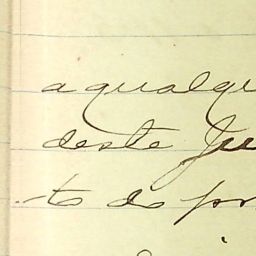 aqualqu
deste Ju
to do pr